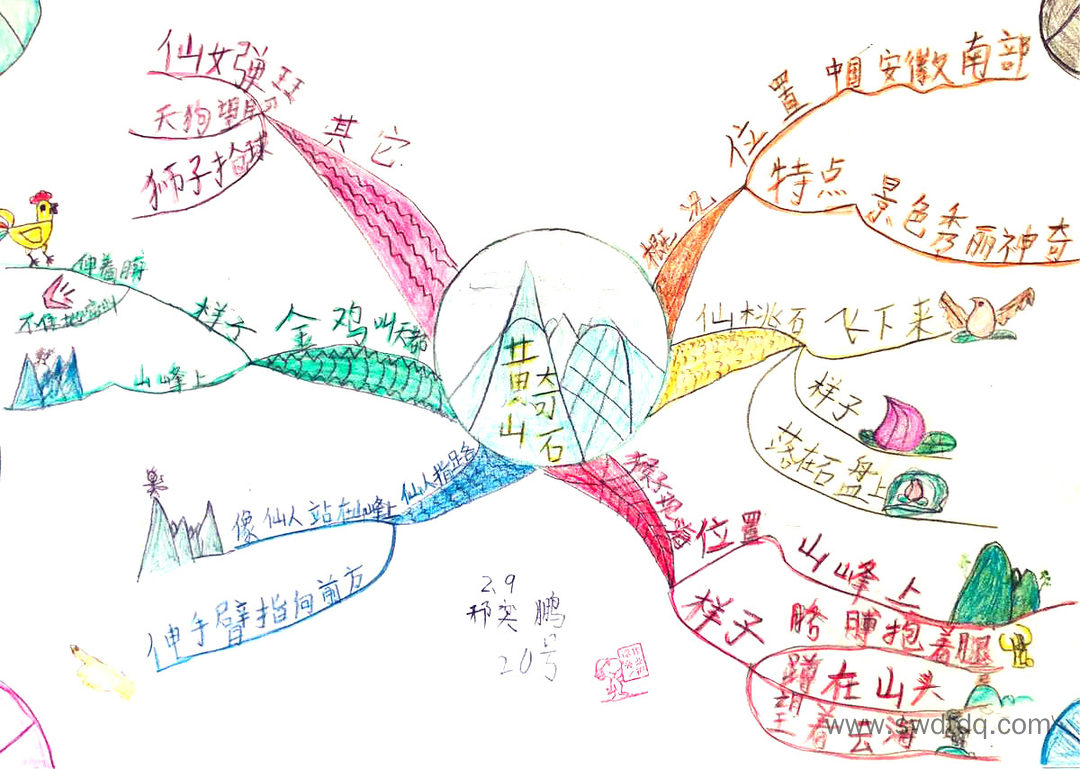 黄山
奇石
概况
位置
中国安徽南部
特点
景色秀丽神奇
仙桃石
飞下来
样子
落在石盘上
猴子观海
位置
山峰上
样子
胳膊抱着腿
蹲在山头
望着云海
仙人指路
像仙人站在山峰上
伸手臂指向前方
金鸡叫天都
样子
伸着脖
山峰上
其它
仙女弹琴
天狗望月
狮子抢球
2.9
鹏
20号
www.swdtdq.com